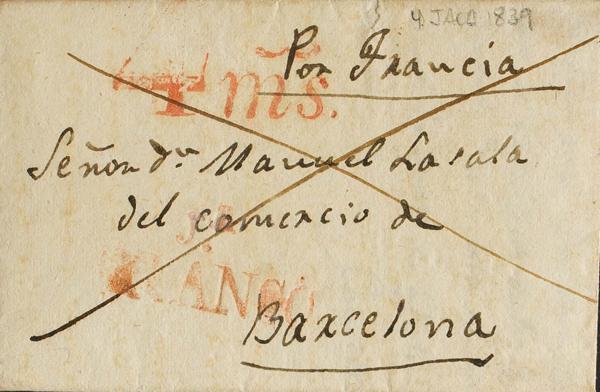 4 JACA 1839
Por Francia
ms.
Señor dn Manuel Lasala
del comercio de
FRANCO
Barcelona